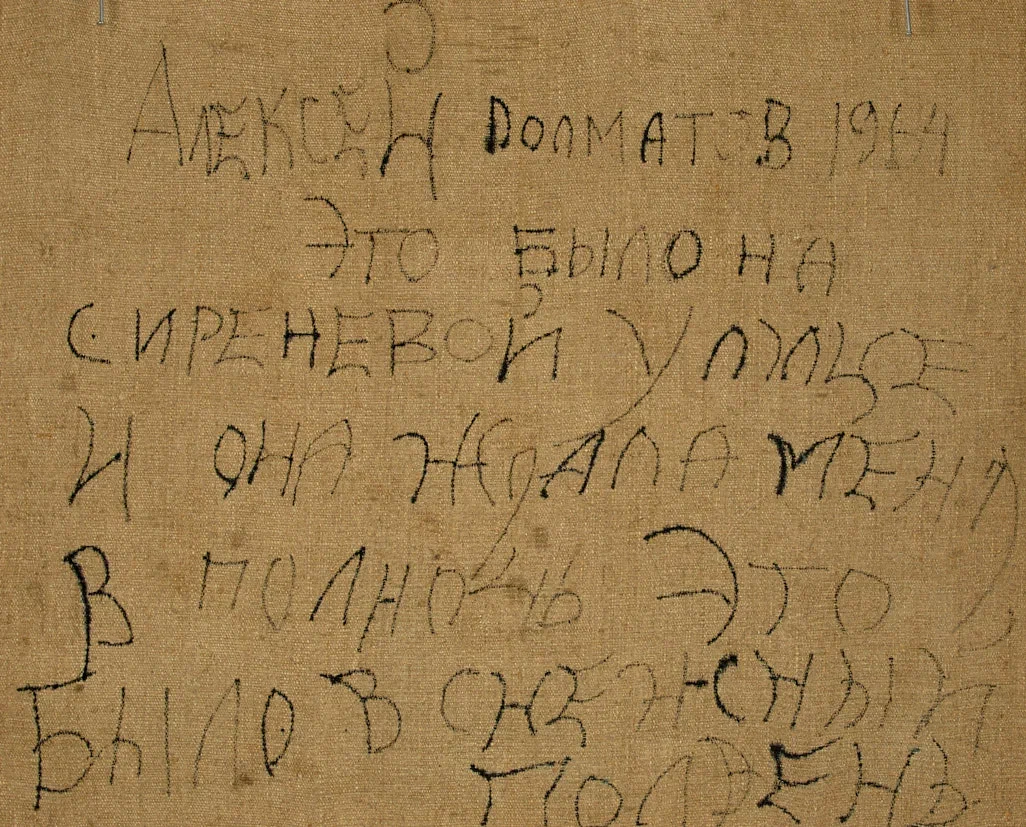 АЛЕКСЕЙ ДОЛМАТОВ 1964
ЭТО БЫЛО НА
СИРЕНЕВОЙ УЛИЦЕ
И ОНА ЖДАЛА МЕНЯ
В ПОЛНОЧЬ ЭТО
БЫЛО В СНЕЖНЫЙ
ПОЛДЕНЬ